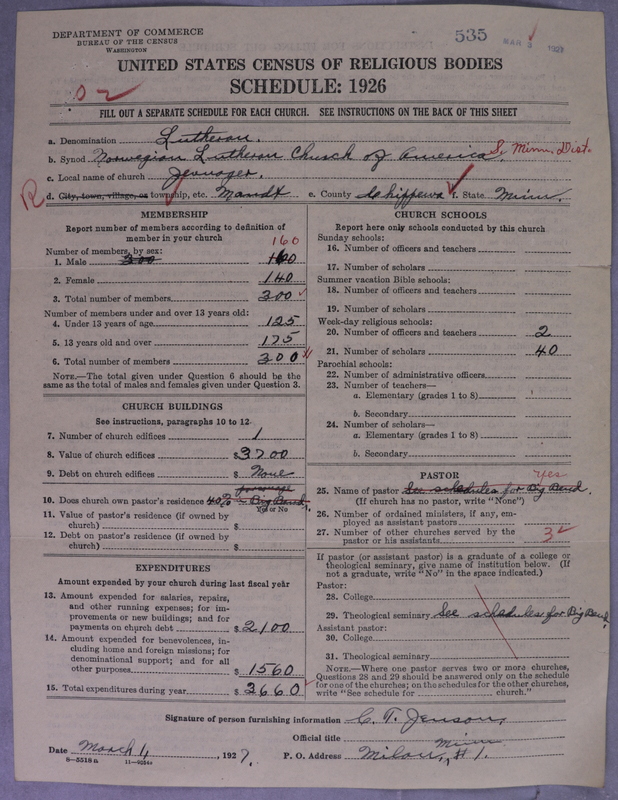 DEPARTMENT OF COMMERCE
BUREAU OF THE CENSUS
WASHINGTON
535
MAR 3 1927
UNITED STATES CENSUS OF RELIGIOUS BODIES
SCHEDULE: 1926
FILL OUT A SEPARATE SCHEDULE FOR EACH CHURCH. SEE INSTRUCTIONS ON THE BACK OF THIS SHEET
a. Denomination Lutheran.
b. Synod Norwegian Lutheran Church of America. So. Minn. Dist.
c. Local name of church Jevnager.
R
d. City, town, village, or township, etc. Mandt e. County Chippewa f. State Minn.
MEMBERSHIP
Report number of members according to definition of member in your church
Number of members, by sex: 160
1. Male 300
2. Female 140
3. Total number of members 300
Number of members under and over 13 years old:
4. Under 13 years of age 125
5. 13 years old and over 175
6. Total number of members 300
NOTE.—The total given under Question 6 should be the same as the total of males and females given under Question 3.
CHURCH BUILDINGS
See instructions, paragraphs 10 to 12
7. Number of church edifices 1
8. Value of church edifices $3700
9. Debt on church edifices $ None
10. Does church own pastor's residence 40% Big Bend
Yes or No
11. Value of pastor's residence (if owned by church) $
12. Debt on pastor's residence (if owned by church) $
EXPENDITURES
Amount expended by your church during last fiscal year
13. Amount expended for salaries, repairs, and other running expenses; for improvements or new buildings; and for payments on church debt $2100
14. Amount expended for benevolences, including home and foreign missions; for denominational support; and for all other purposes $1560
15. Total expenditures during year $3660
CHURCH SCHOOLS
Report here only schools conducted by this church
Sunday schools:
16. Number of officers and teachers
17. Number of scholars
Summer vacation Bible schools:
18. Number of officers and teachers
19. Number of scholars
Week-day religious schools:
20. Number of officers and teachers 2
21. Number of scholars 40
Parochial schools:
22. Number of administrative officers
23. Number of teachers—
a. Elementary (grades 1 to 8)
b. Secondary
24. Number of scholars—
a. Elementary (grades 1 to 8)
b. Secondary
PASTOR
yes
25. Name of pastor See schedules for Big Bend.
(If church has no pastor, write "None")
26. Number of ordained ministers, if any, employed as assistant pastors
27. Number of other churches served by the pastor or his assistants 3
If pastor (or assistant pastor) is a graduate of a college or theological seminary, give name of institution below. (If not a graduate, write "No" in the space indicated.)
Pastor:
28. College
29. Theological seminary See schedules for Big Bend,
Assistant pastor:
30. College
31. Theological seminary
NOTE.—Where one pastor serves two or more churches, Questions 28 and 29 should be answered only on the schedule for one of the churches; on the schedules for the other churches, write "See schedule for church."
Signature of person furnishing information C. T. Jenson,
Official title
Date March 4, 1927. P. O. Address Milan, Minn #1.
8—5518a 11—9054